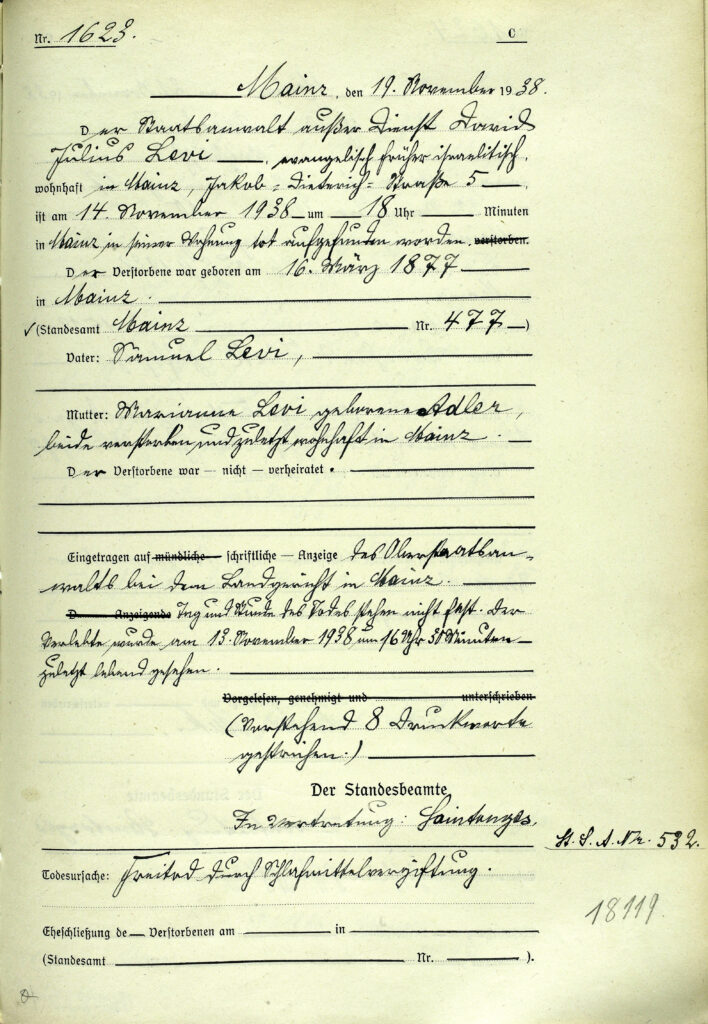 Nr. 1623.
C
Mainz, den 19. November 1938.
Der Staatsanwalt außer Dienst David
Julius Levi, evangelisch früher israelitisch,
wohnhaft in Mainz, Jakob-Dieterich-Straße 5,
ist am 14. November 1938 um 18 Uhr Minuten
in Mainz in seiner Wohnung tot aufgefunden worden. verstorben.
Der Verstorbene war geboren am 16. März 1877
in Mainz.
(Standesamt Mainz Nr. 477)
Vater: Samuel Levi,
Mutter: Marianne Levi geborene Adler,
beide verstorben und zuletzt wohnhaft in Mainz.
Der Verstorbene war — nicht — verheiratet.
Eingetragen auf mündliche — schriftliche — Anzeige des Oberstaatsan-
walts bei dem Landgericht in Mainz.
D Anzeigende Tag und Stunde des Todes stehen nicht fest. Der
Verlebte wurde am 13. November 1938 um 16 Uhr 30 Minuten
zuletzt lebend gesehen.
Vorgelesen, genehmigt und unterschrieben
(Vorstehend 8 Druckworte
gestrichen.)
Der Standesbeamte
In Vertretung:
St. S. A. Nr. 532.
Todesursache: Freitod durch Schlafmittelvergiftung.
18119.
Eheschließung de Verstorbenen am in
(Standesamt Nr. ).